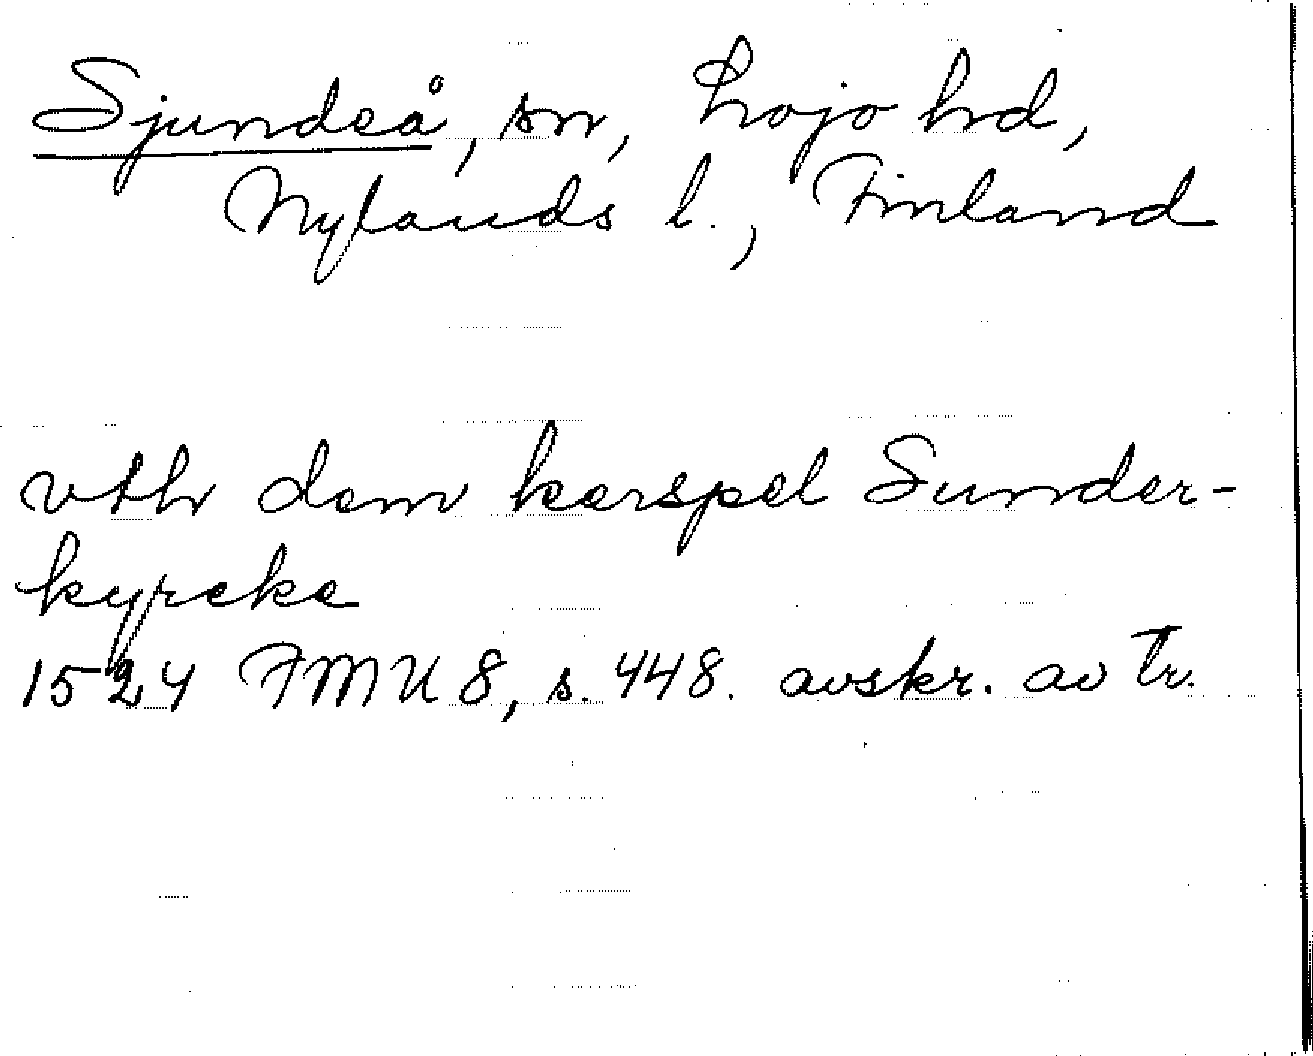 Sjundeå, sn, Lojo hd,
Nylands l., Finland
vthr dem kerspel Sunder-
kyrcke
1524 FMU 8, s. 448. avskr. av Tr.